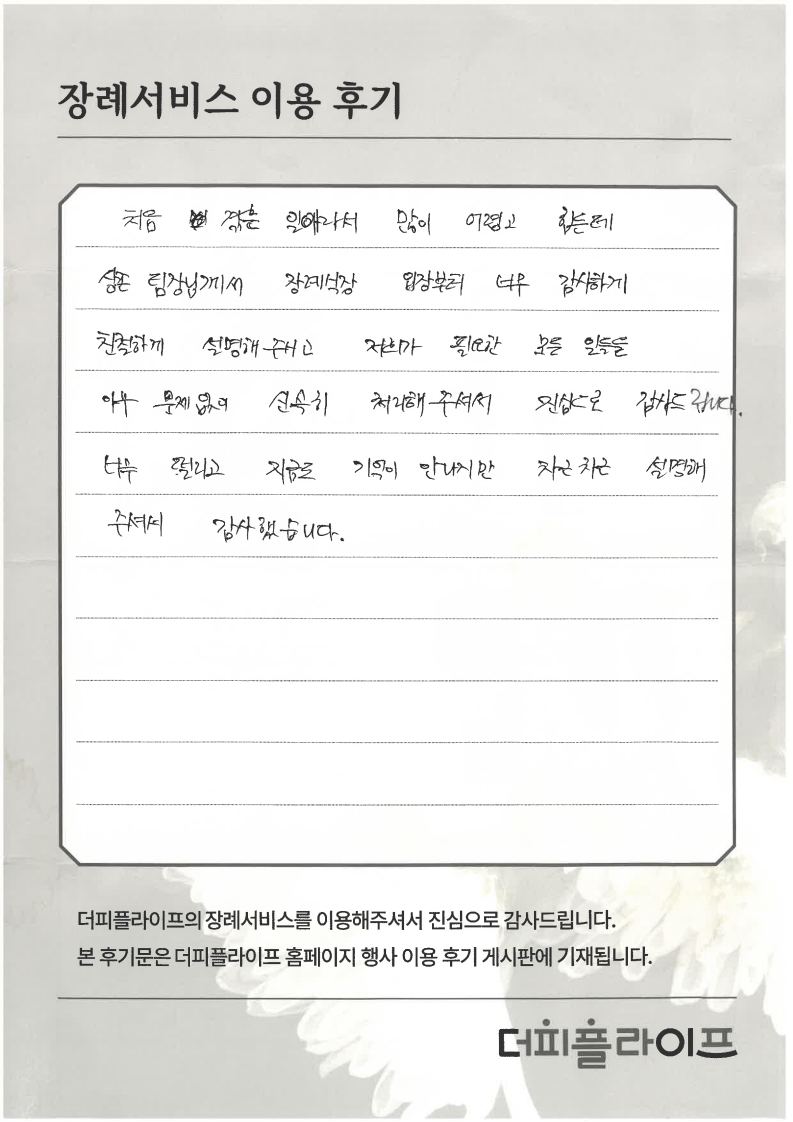 장례서비스 이용 후기
처음 겪는 일이라서 많이 어렵고 힘든데
팀장님께서 장례식장 입장부터 너무 감사하게
친절하게 설명해주시고 저희가 필요한 모든 일들을
아무 문제없이 신속히 처리해주셔서 진심으로 감사드립니다.
너무 떨리고 지금도 기억이 안나지만 차근차근 설명해
주셔서 감사했습니다.
더피플라이프의 장례서비스를 이용해주셔서 진심으로 감사드립니다.
본 후기문은 더피플라이프 홈페이지 행사 이용 후기 게시판에 기재됩니다.
더피플라이프